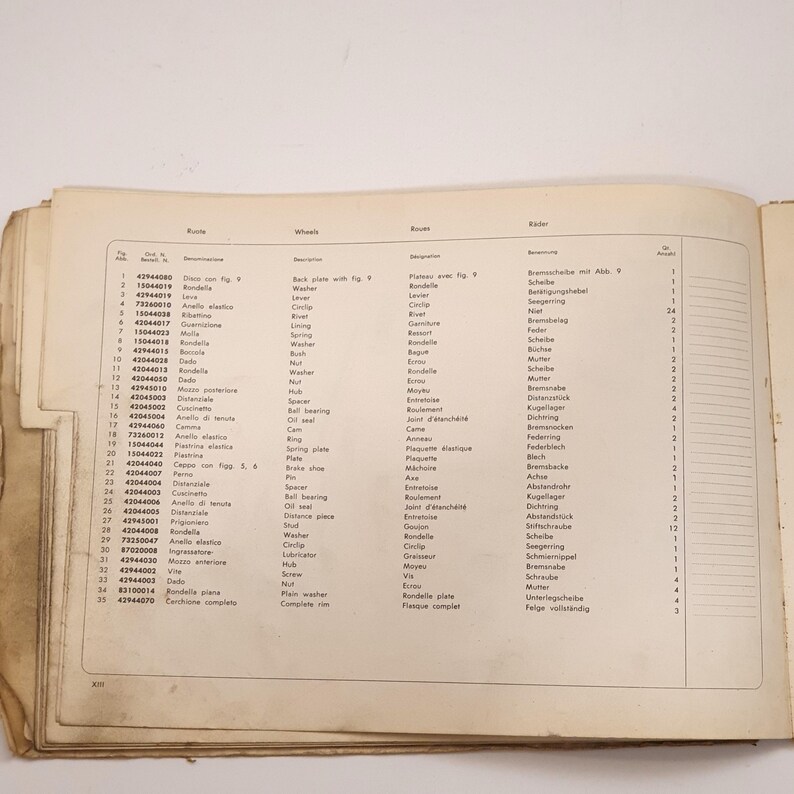 Ruote Wheels Roues Räder
Fig. Abb. Ord. N. Bestell. N. Denominazione Description Désignation Benennung Qt. Anzahl
1 42944080 Disco con fig. 9 Back plate with fig. 9 Plateau avec fig. 9 Bremsscheibe mit Abb. 9 1
2 15044019 Rondella Washer Rondelle Scheibe 1
3 42944019 Leva Lever Levier Betätigungshebel 1
4 73260010 Anello elastico Circlip Circlip Seegerring 1
5 15044038 Ribattino Rivet Rivet Niet 24
6 42044017 Guarnizione Lining Garniture Bremsbelag 2
7 15044023 Molla Spring Ressort Feder 2
8 15044018 Rondella Washer Rondelle Scheibe 1
9 42944015 Boccola Bush Bague Büchse 1
10 42044028 Dado Nut Ecrou Mutter 2
11 42044013 Rondella Washer Rondelle Scheibe 2
12 42044050 Dado Nut Ecrou Mutter 2
13 42945010 Mozzo posteriore Hub Moyeu Bremsnabe 2
14 42045003 Distanziale Spacer Entretoise Distanzstück 2
15 42045002 Cuscinetto Ball bearing Roulement Kugellager 4
16 42045004 Anello di tenuta Oil seal Joint d'étanchéité Dichtring 2
17 42944060 Camma Cam Came Bremsnocken 1
18 73260012 Anello elastico Ring Anneau Federring 2
19 15044044 Piastrina elastica Spring plate Plaquette élastique Federblech 1
20 15044022 Piastrina Plate Plaquette Blech 1
21 42044040 Ceppo con figg. 5, 6 Brake shoe Mâchoire Bremsbacke 2
22 42044007 Perno Pin Axe Achse 1
23 42044004 Distanziale Spacer Entretoise Abstandrohr 1
24 42044003 Cuscinetto Ball bearing Roulement Kugellager 2
25 42044006 Anello di tenuta Oil seal Joint d'étanchéité Dichtring 2
26 42044005 Distanziale Distance piece Entretoise Abstandstück 2
27 42945001 Prigioniero Stud Goujon Stiftschraube 12
28 42044008 Rondella Washer Rondelle Scheibe 1
29 73250047 Anello elastico Circlip Circlip Seegerring 1
30 87020008 Ingrassatore- Lubricator Graisseur Schmiernippel 1
31 42944030 Mozzo anteriore Hub Moyeu Bremsnabe 1
32 42944002 Vite Screw Vis Schraube 4
33 42944003 Dado Nut Ecrou Mutter 4
34 83100014 Rondella piana Plain washer Rondelle plate Unterlegscheibe 4
35 42944070 Cerchione completo Complete rim Flasque complet Felge vollständig 3
XIII